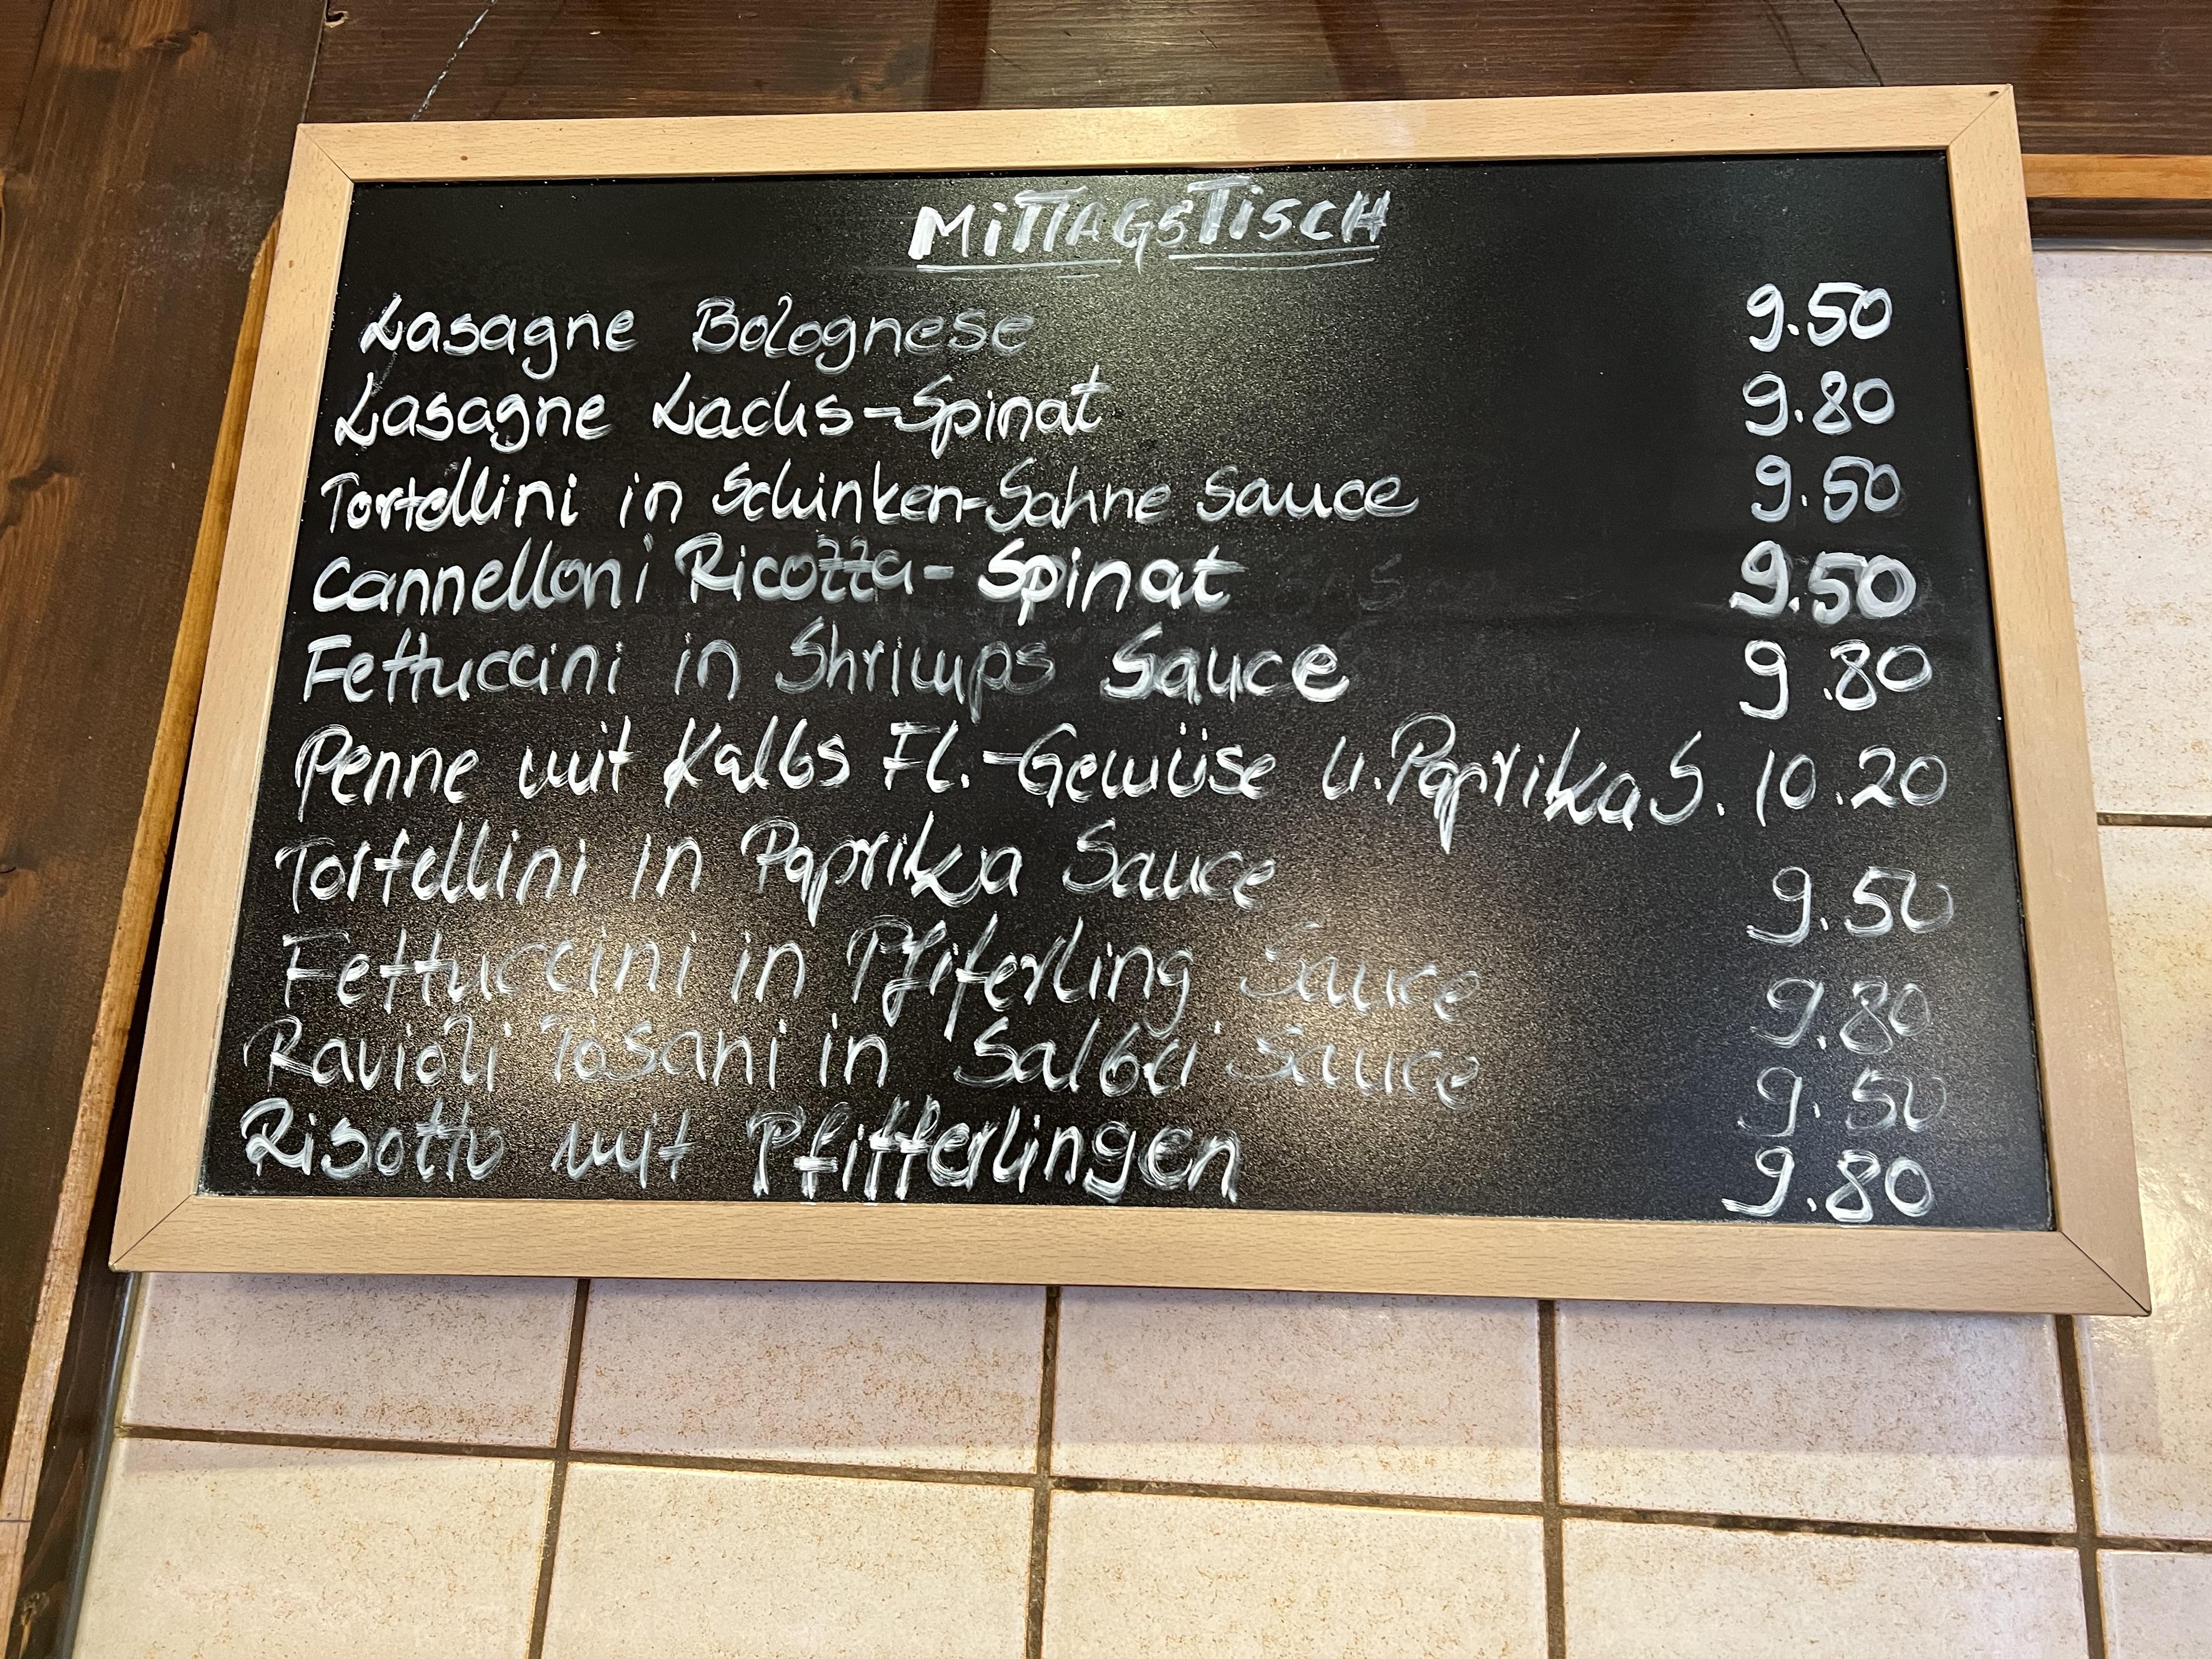 MITTAGSTISCH
Lasagne Bolognese 9.50
Lasagne Lachs-Spinat 9.80
Tortellini in Schinken-Sahne Sauce 9.50
Cannelloni Ricotta- Spinat 9.50
Fettuccini in Shrimps Sauce 9.80
Penne mit Kalbs Fl.-Gemüse u. Paprika S. 10.20
Tortellini in Paprika Sauce 9.50
Fettuccini in Pfiferling Sauce 9.80
Ravioli Tosani in Salbei Sauce 9.50
Risotto mit Pfifferlingen 9.80